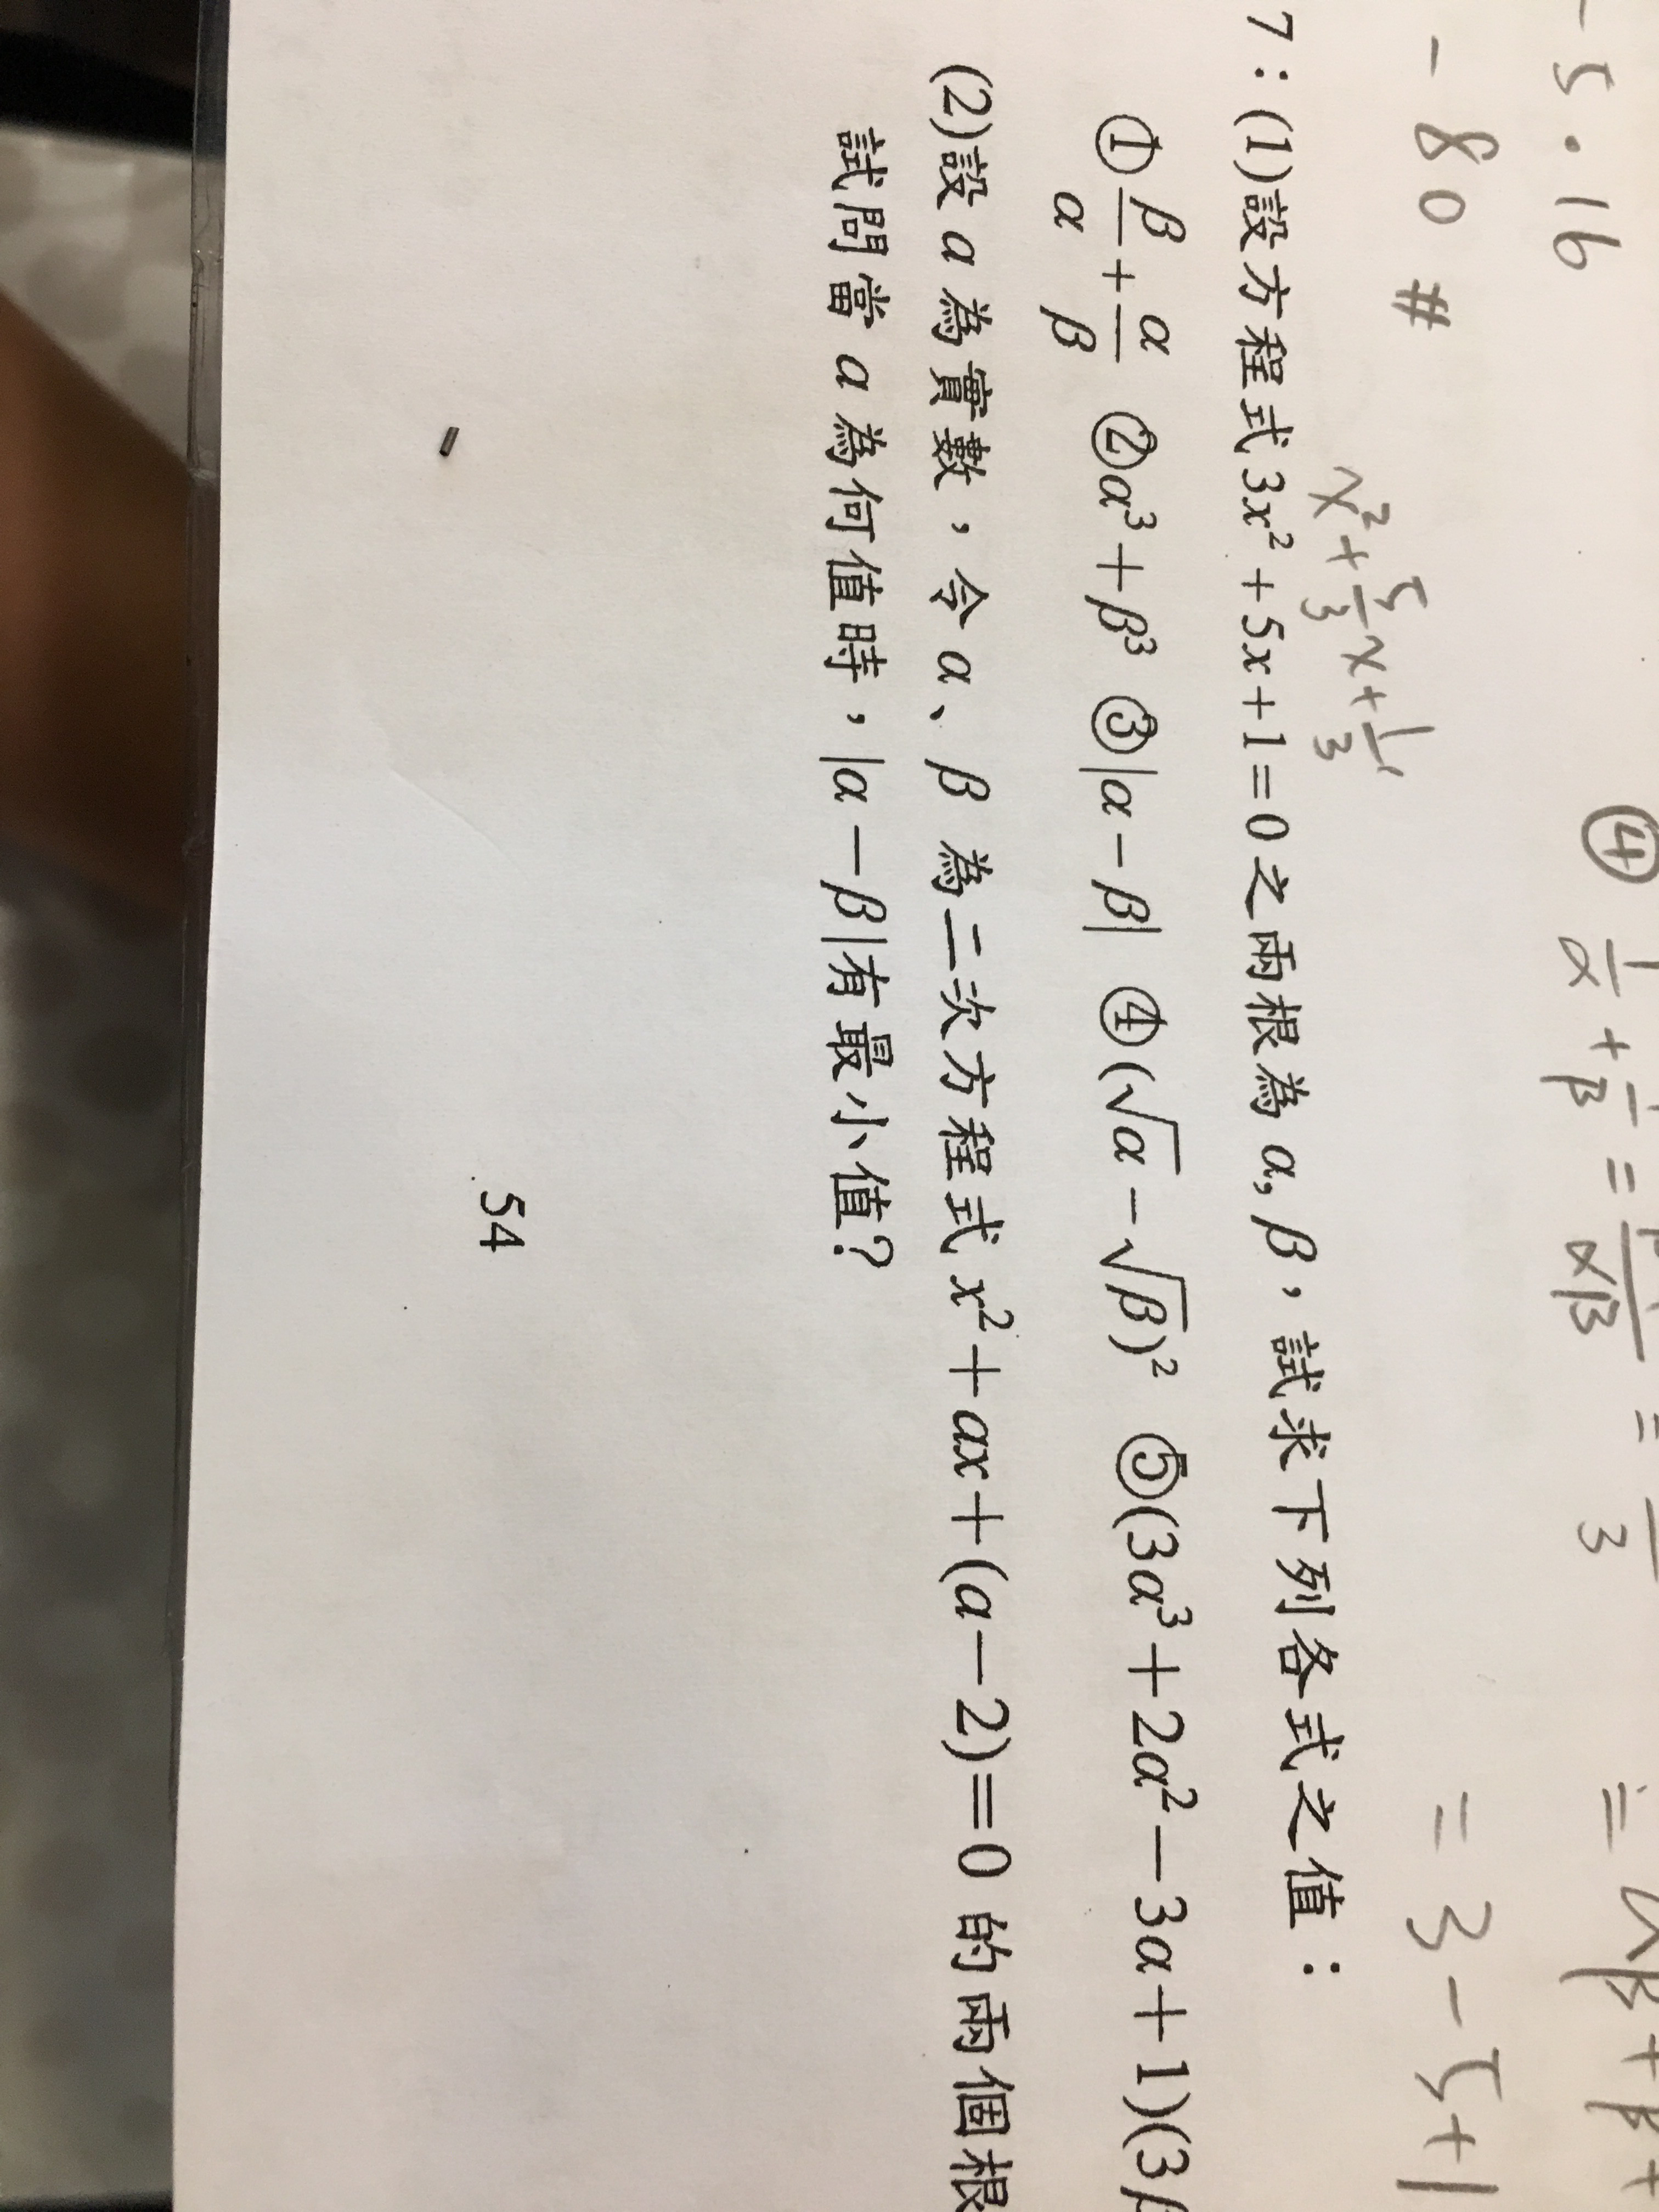 - 5 · 16
④ 1/α + 1/β = /αβ = /3
- 80 #
= 3 - 5 + 1
x² + 5/3 x + 1/3
7：(1)設方程式3x²+5x+1=0之兩根為α,β，試求下列各式之值：
①β/α+α/β ②α³+β³ ③|α-β| ④(√α-√β)² ⑤(3α³+2α²-3α+1)(3β
(2)設a為實數，令α、β為二次方程式x²+ax+(a-2)=0的兩個根
試問當a為何值時，|α-β|有最小值？
54